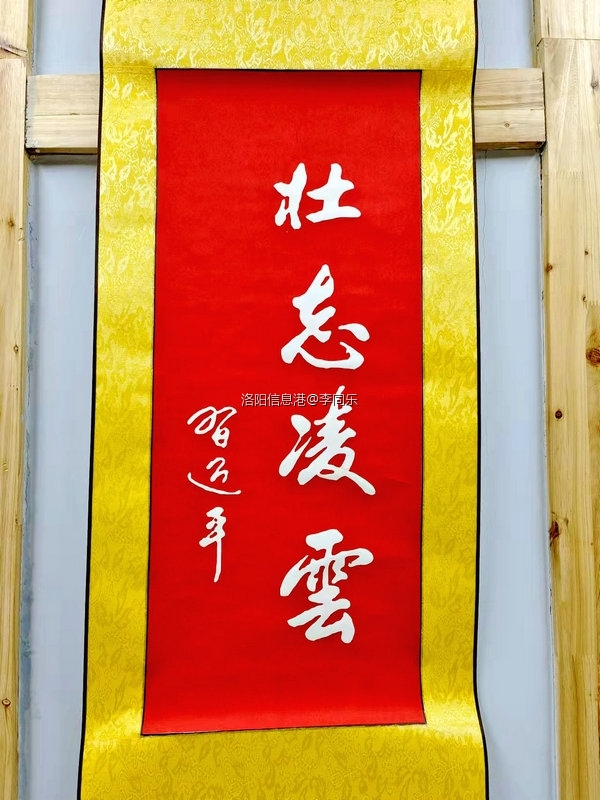 壮志凌雲
习近平
洛阳信息港@李同乐